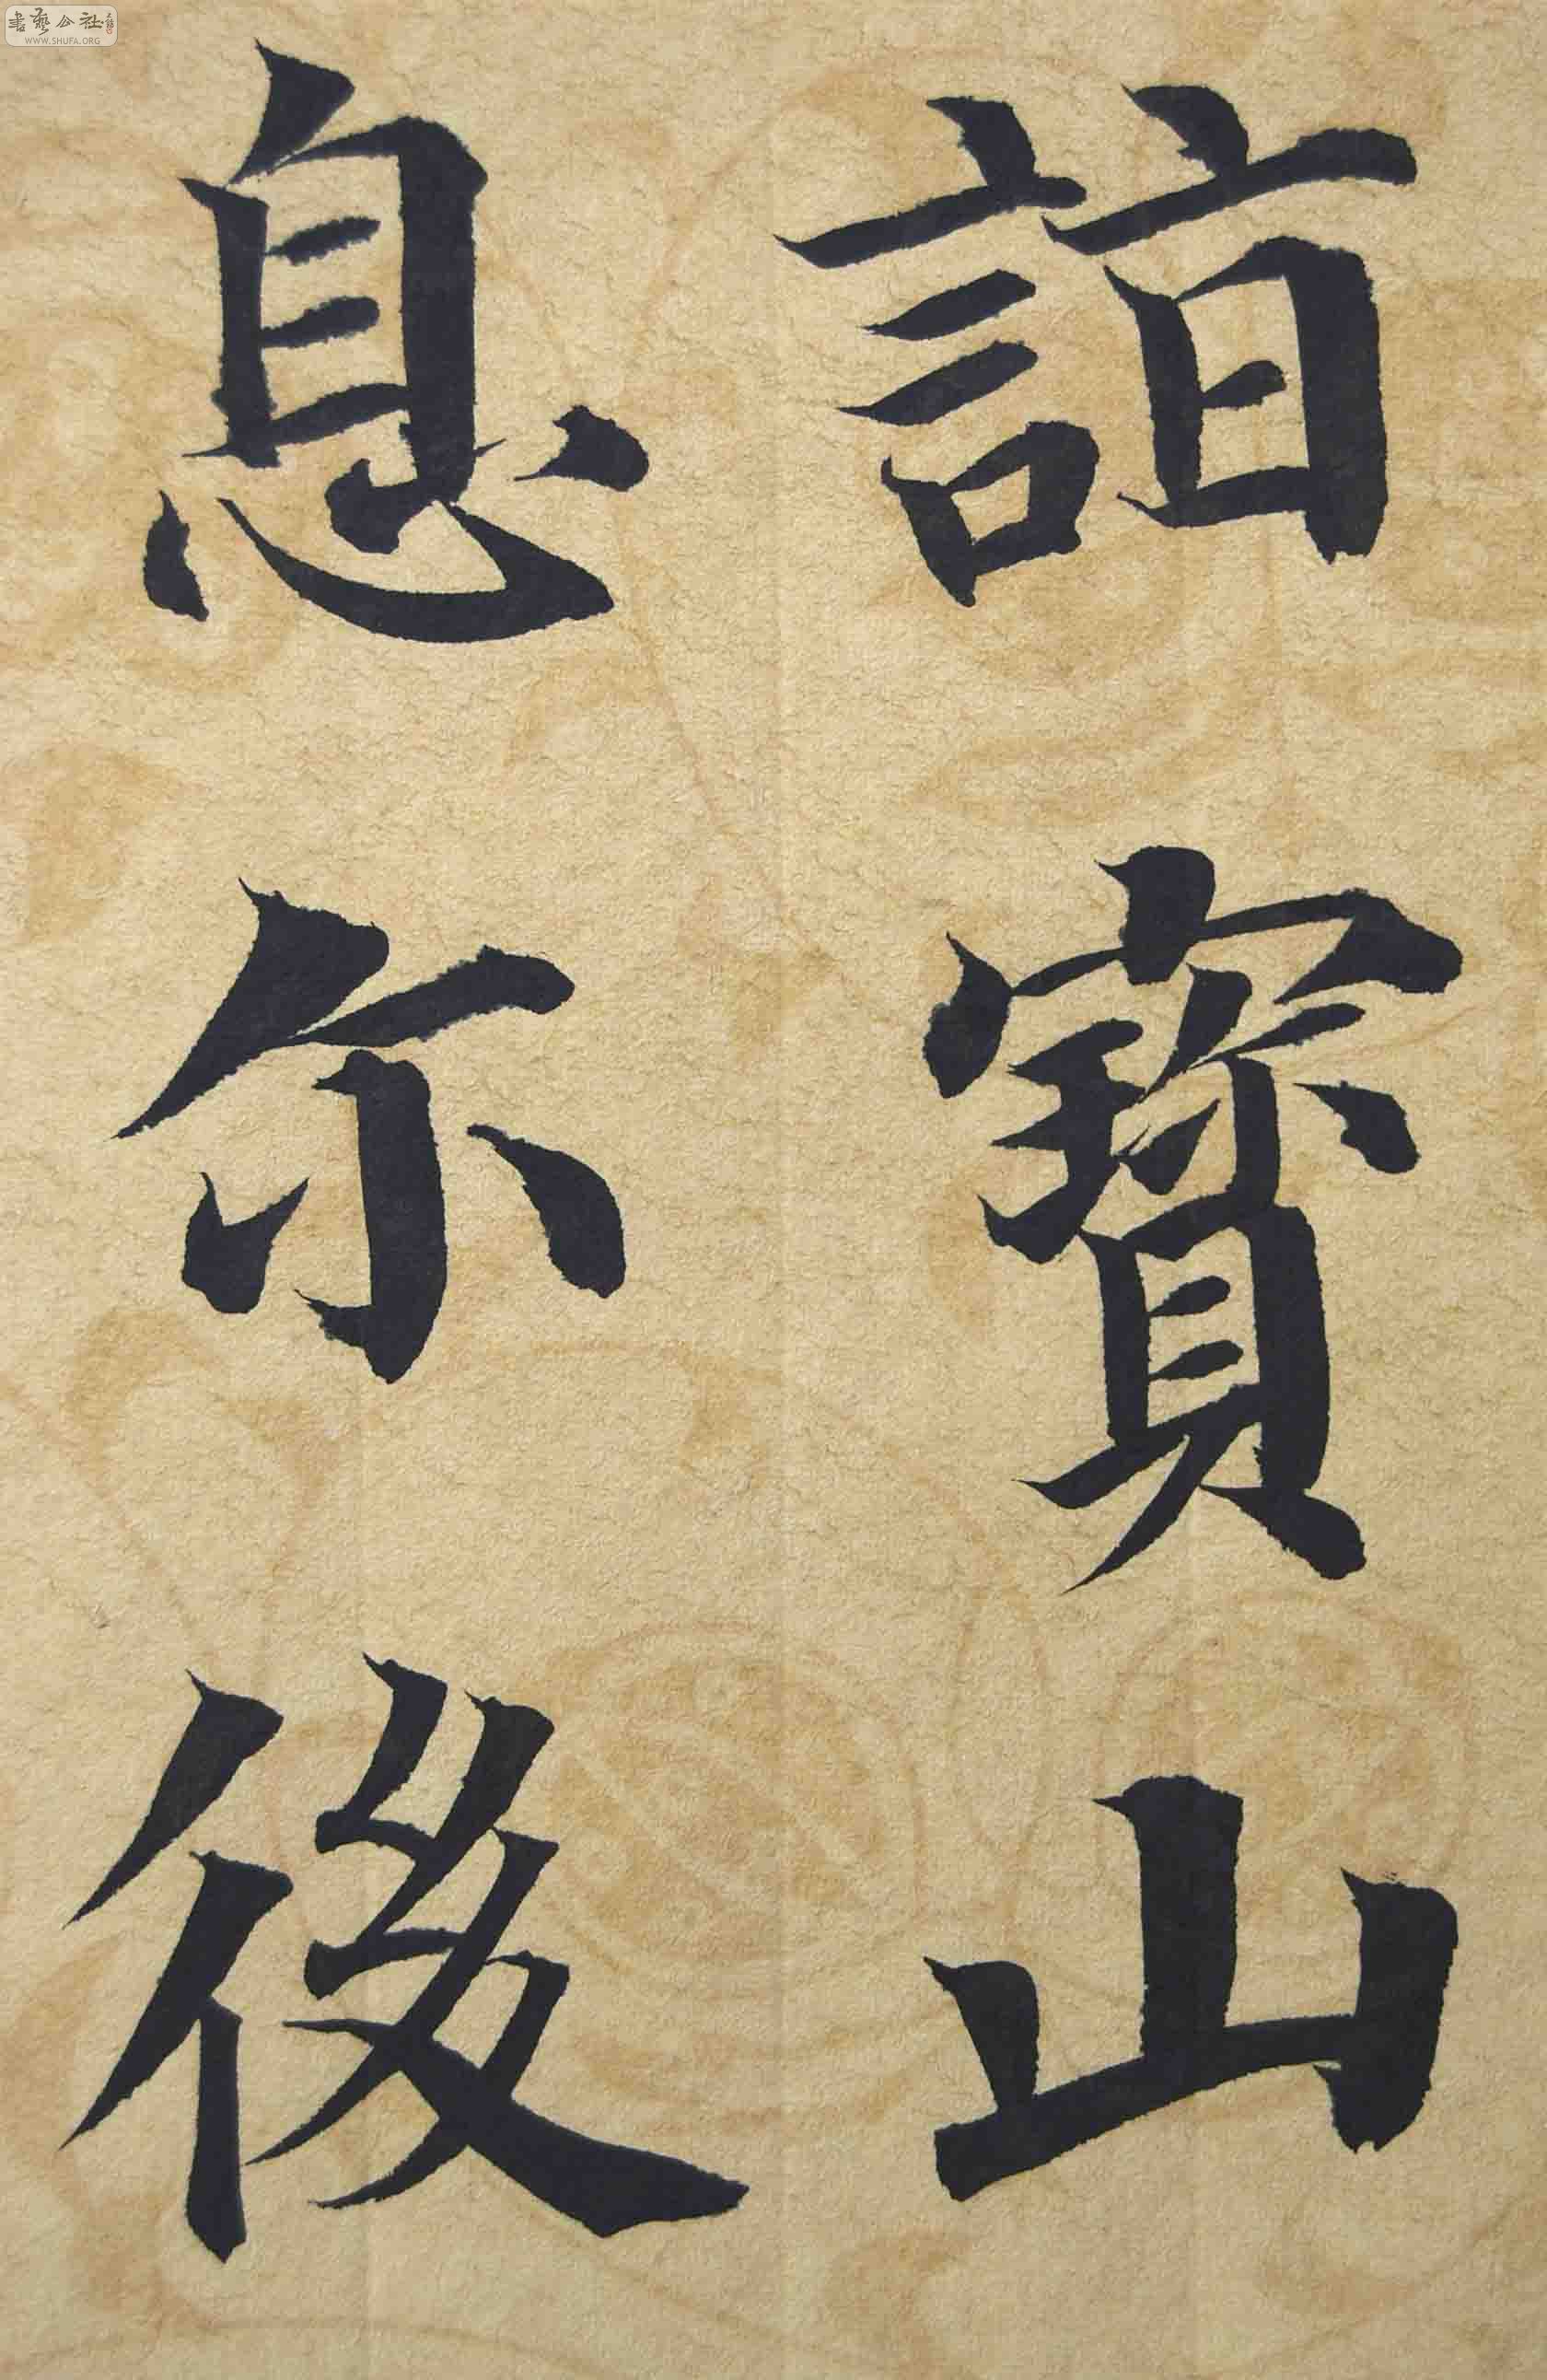 書藝公社
WWW.SHUFA.ORG
詣寶山
息尔後